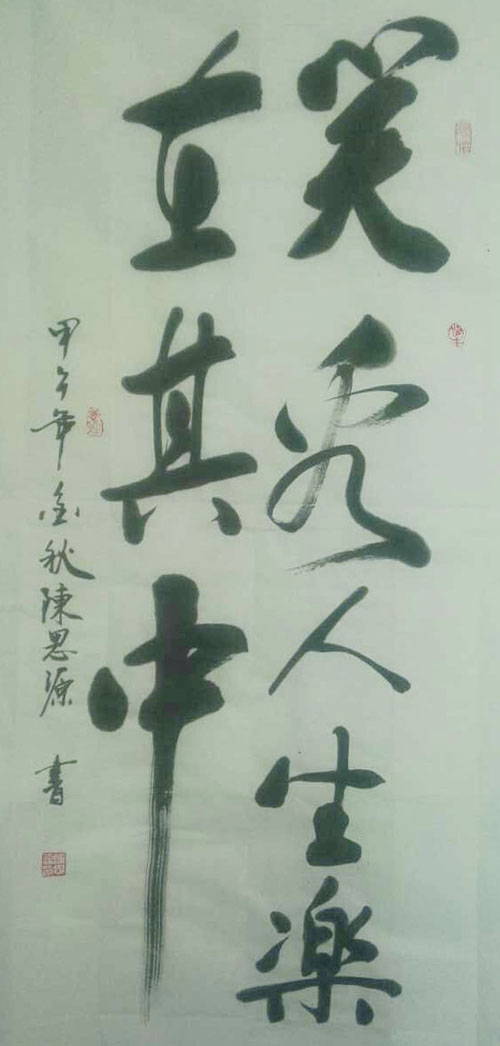 笑看人生樂
在其中
甲午年金秋陳思源書